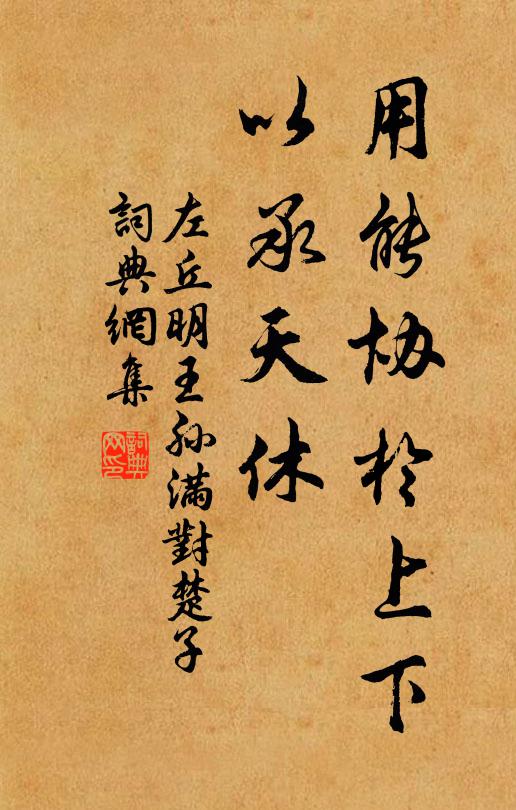 用能协於上下
以承天休
左丘明王孙滿對楚子
詞典網集
詞典网印